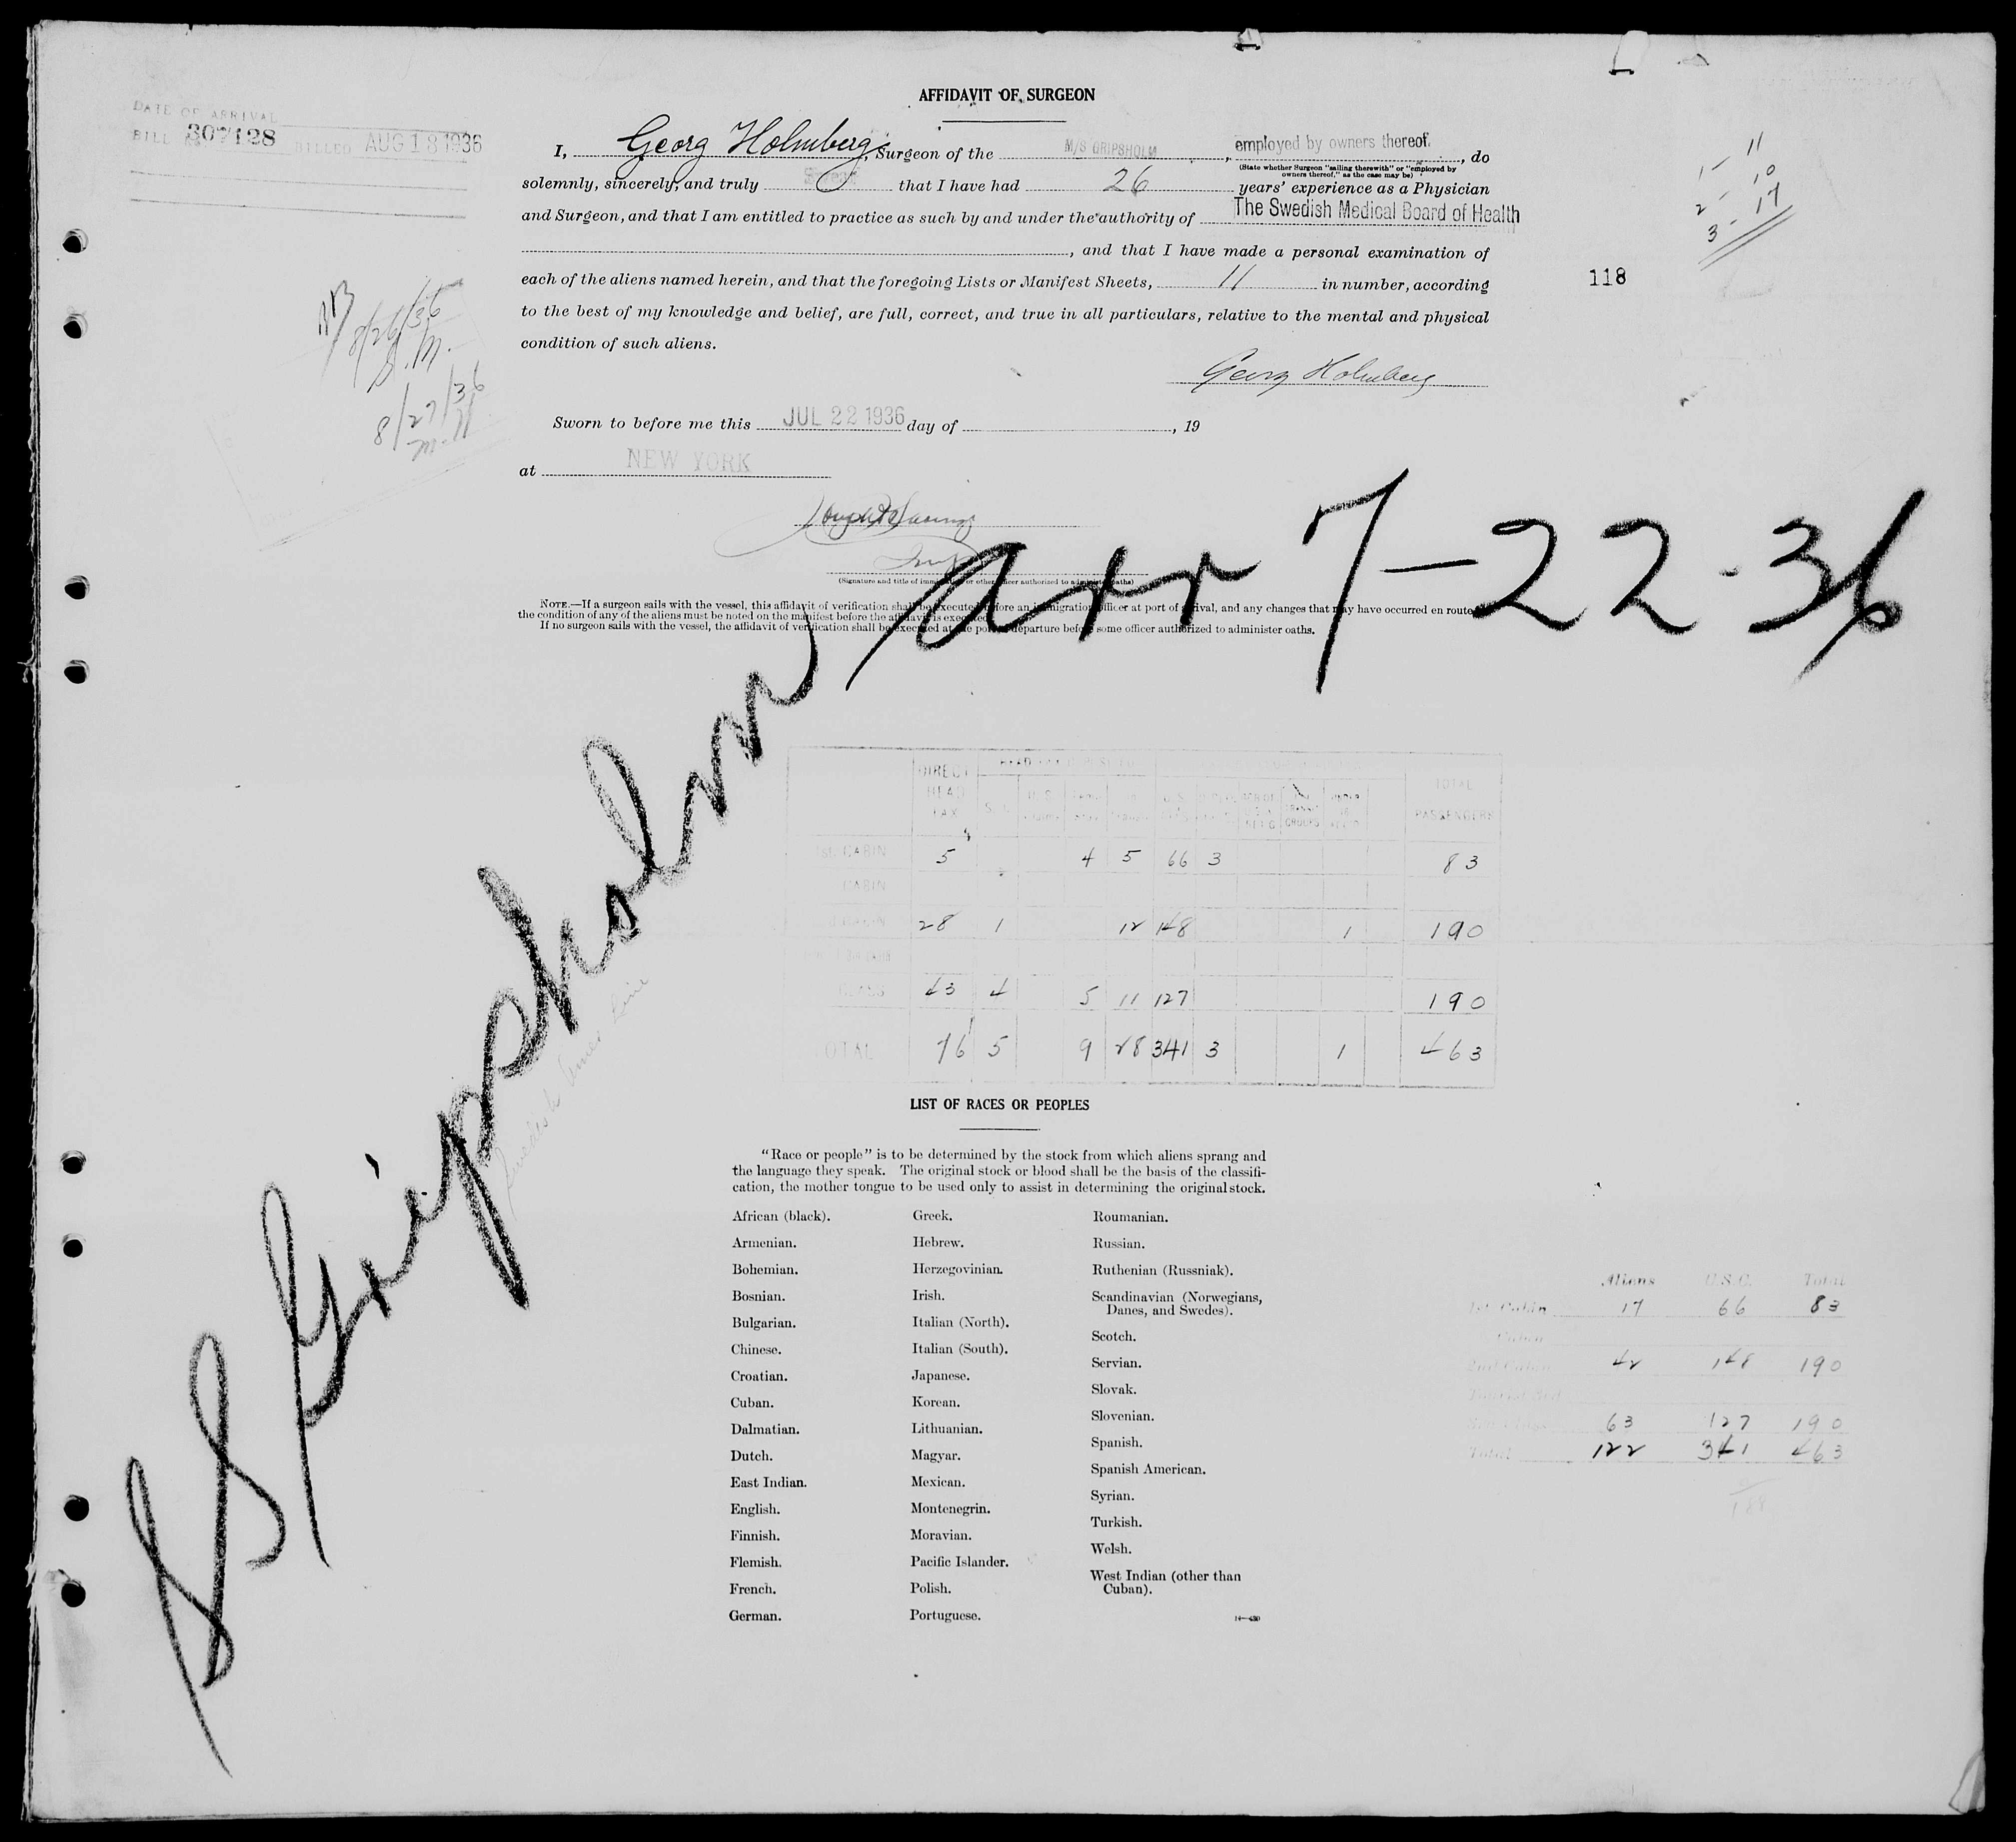 AFFIDAVIT OF SURGEON
DATE OF ARRIVAL
BILL No 307128 BILLED AUG 18 1936
I, Georg Holmberg, Surgeon of the M/S GRIPSHOLM, employed by owners thereof., do
(State whether Surgeon "sailing therewith" or "employed by
owners thereof," as the case may be)
solemnly, sincerely, and truly Swear that I have had 26 years' experience as a Physician
and Surgeon, and that I am entitled to practice as such by and under the authority of The Swedish Medical Board of Health
, and that I have made a personal examination of
each of the aliens named herein, and that the foregoing Lists or Manifest Sheets, 11 in number, according
to the best of my knowledge and belief, are full, correct, and true in all particulars, relative to the mental and physical
condition of such aliens.
1 - 11
2 - 10
3 - 17
118
8/26/36
S.M.
8/27/36
Georg Holmberg
Sworn to before me this JUL 22 1936 day of , 19
at NEW YORK
Insp
(Signature and title of immigration or other officer authorized to administer oaths)
NOTE.—If a surgeon sails with the vessel, this affidavit of verification shall be executed before an immigration officer at port of arrival, and any changes that may have occurred en route
the condition of any of the aliens must be noted on the manifest before the affidavit is executed.
If no surgeon sails with the vessel, the affidavit of verification shall be executed at the port of departure before some officer authorized to administer oaths.
SS Gripsholm, arr 7-22-36
Swedish Amer Line
DIRECT HEAD TAX
TOTAL PASSENGERS
1st CABIN 5 4 5 66 3 83
CABIN
28 1 12 148 1 190
CLASS 43 4 5 11 127 190
TOTAL 76 5 9 28 341 3 1 463
LIST OF RACES OR PEOPLES
"Race or people" is to be determined by the stock from which aliens sprang and
the language they speak. The original stock or blood shall be the basis of the classifi-
cation, the mother tongue to be used only to assist in determining the original stock.
African (black).
Armenian.
Bohemian.
Bosnian.
Bulgarian.
Chinese.
Croatian.
Cuban.
Dalmatian.
Dutch.
East Indian.
English.
Finnish.
Flemish.
French.
German.
Greek.
Hebrew.
Herzegovinian.
Irish.
Italian (North).
Italian (South).
Japanese.
Korean.
Lithuanian.
Magyar.
Mexican.
Montenegrin.
Moravian.
Pacific Islander.
Polish.
Portuguese.
Roumanian.
Russian.
Ruthenian (Russniak).
Scandinavian (Norwegians,
Danes, and Swedes).
Scotch.
Servian.
Slovak.
Slovenian.
Spanish.
Spanish American.
Syrian.
Turkish.
Welsh.
West Indian (other than
Cuban).
Aliens U.S.C. Total
1st Cabin 17 66 83
Cabin
2nd Cabin 42 148 190
63 127 190
Total 122 341 463
188